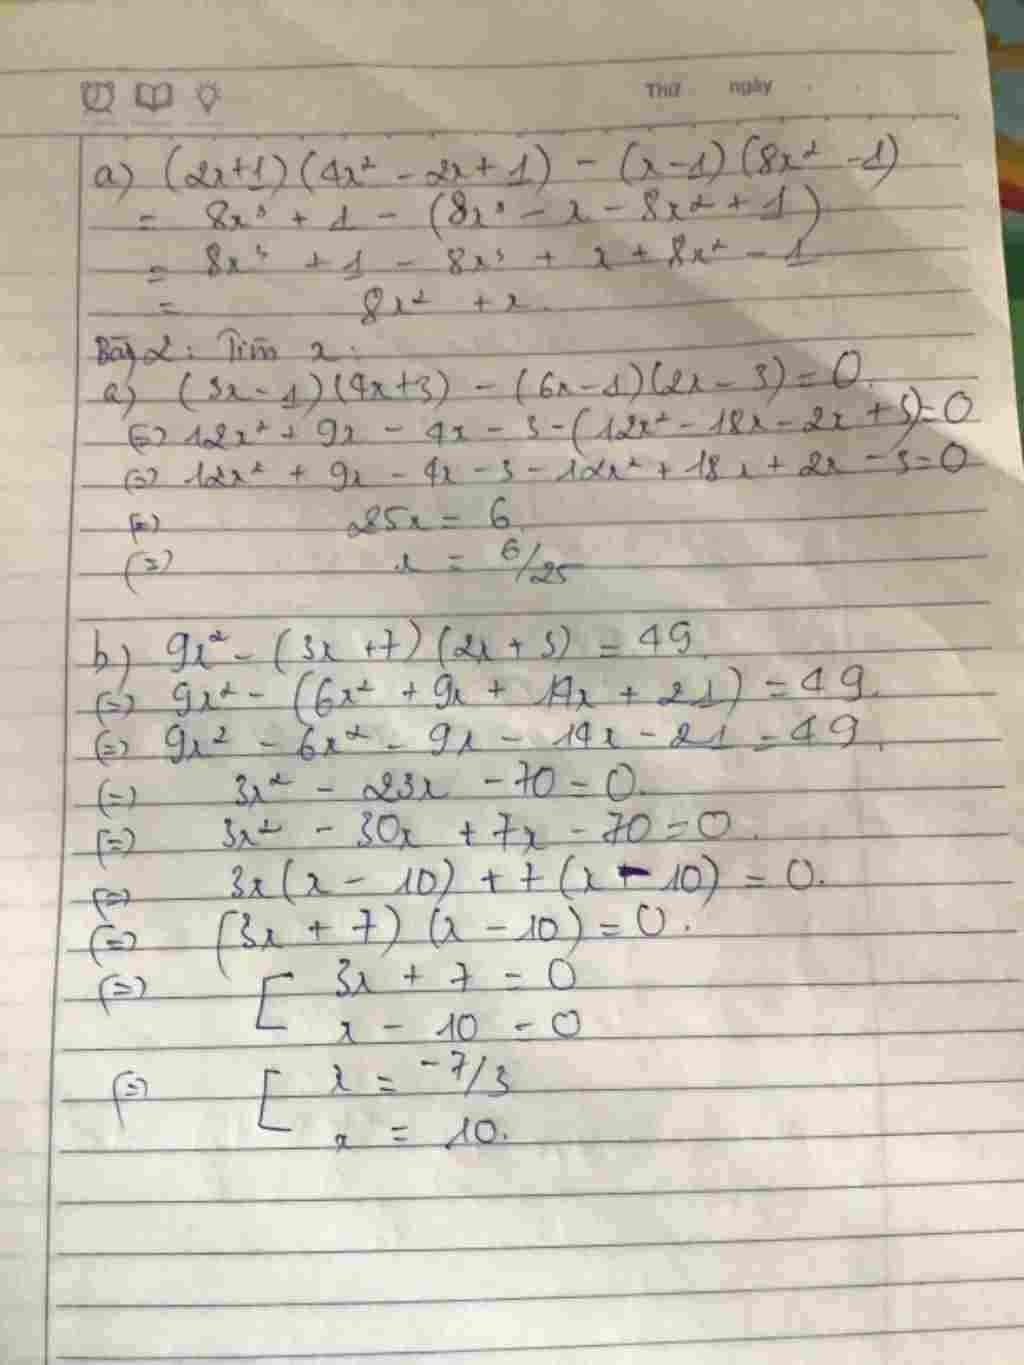 Thứ ngày
a) (2x+1)(4x² - 2x + 1) - (x-1)(8x² - 1)
= 8x³ + 1 - (8x³ - x - 8x² + 1)
= 8x³ + 1 - 8x³ + x + 8x² - 1
= 8x² + x.
Bài 2: Tìm x:
a) (3x-1)(4x+3) - (6x-1)(2x-3) = 0.
(=) 12x² + 9x - 4x - 3 - (12x² - 18x - 2x + 3) = 0
(=) 12x² + 9x - 4x - 3 - 12x² + 18x + 2x - 3 = 0
(=) 25x = 6.
(=) x = 6/25
b) 9x² - (3x + 7)(2x + 3) = 49.
(=) 9x² - (6x² + 9x + 14x + 21) = 49.
(=) 9x² - 6x² - 9x - 14x - 21 = 49.
(=) 3x² - 23x - 70 = 0.
(=) 3x² - 30x + 7x - 70 = 0.
(=) 3x(x - 10) + 7(x - 10) = 0.
(=) (3x + 7)(x - 10) = 0.
(=) [ 3x + 7 = 0
x - 10 = 0
(=) [ x = -7/3
x = 10.